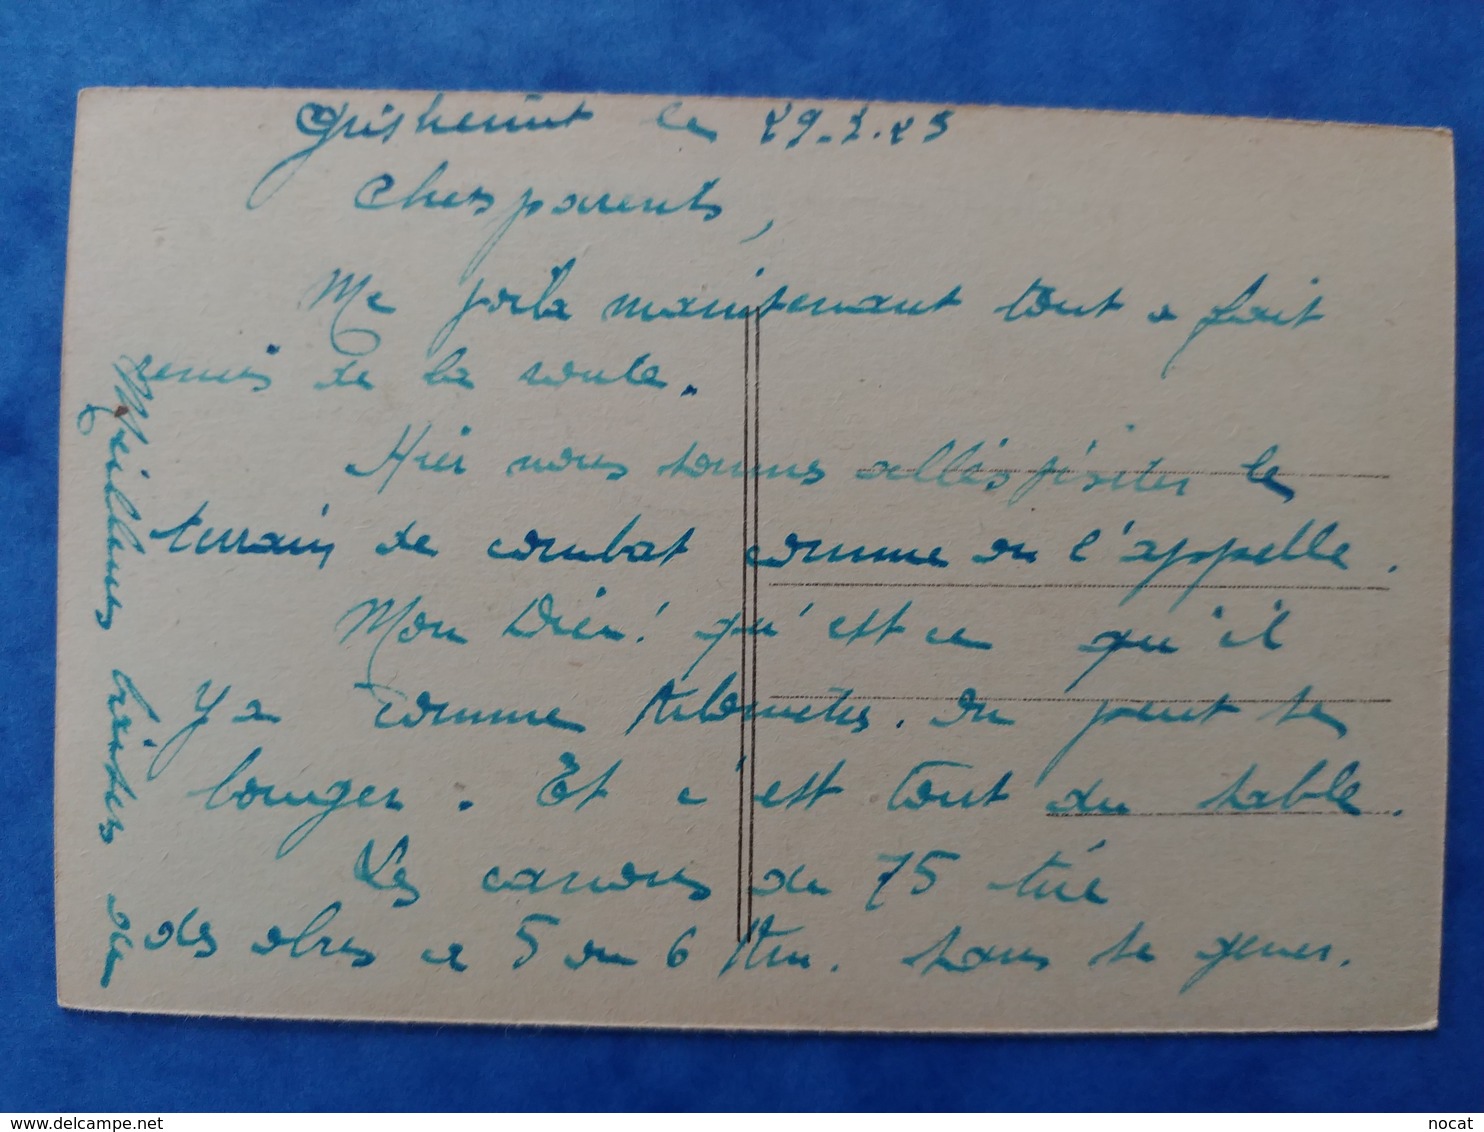 le 29-1.25
Chers parents,
Me voila maintenant tout a fait
remis de la route.
Hier nous sommes allés visiter le
terrain de combat comme on l'appelle.
Mon Dieu! qu'est ce qu'il
y a comme kilometres. on peut se
bouger. Et c'est tout du sable.
Les canons de 75 tire
des obus a 5 ou 6 Km. sans se gener.
Meilleures baisers de
www.delcampe.net
nocat